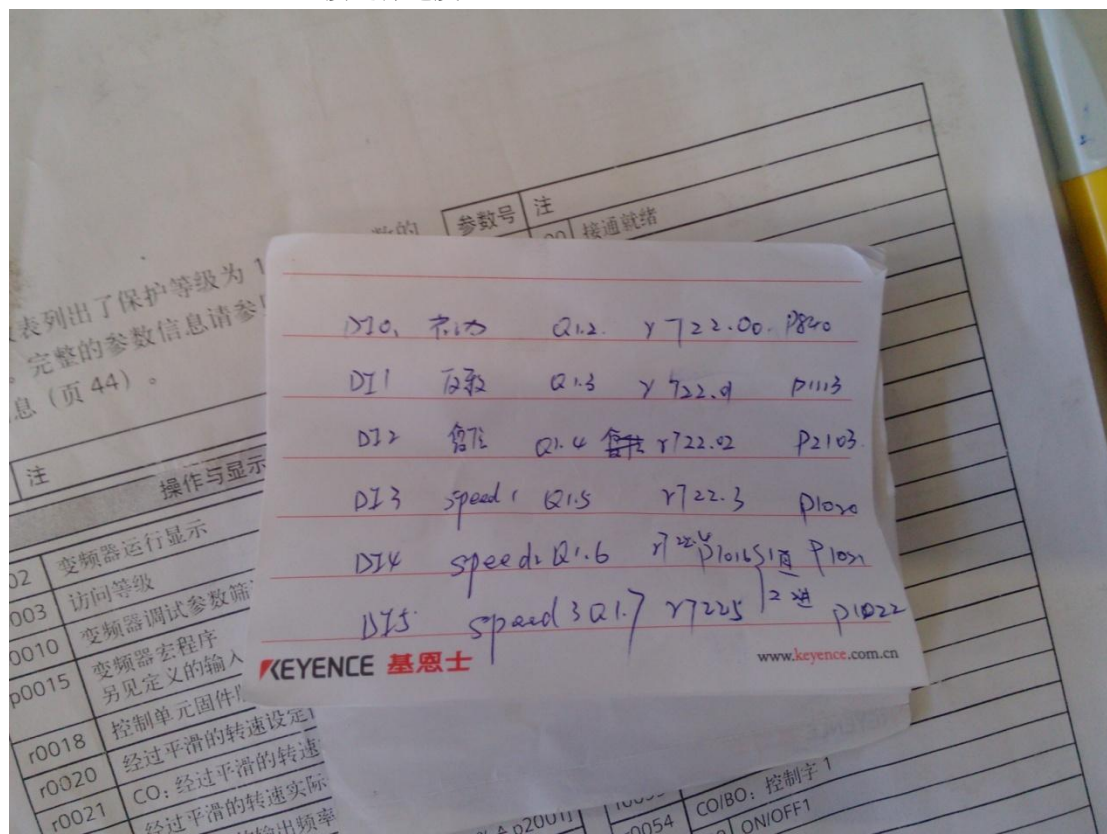 参数号 注
接通就绪
数的
表列出了保护等级为 1
完整的参数信息请参
息(页 44)。
注
操作与显示
02 变频器运行显示
003 访问等级
0010 变频器调试参数筛
p0015 变频器宏程序
另见定义的输入
r0018 控制单元固件
r0020 经过平滑的转速设定
r0021 CO:经过平滑的转速
经过平滑的转速实际
输出频率
DI0, Q1.2. r722.00. P840
DI1 反转 Q1.3 r722.01 P1113
DI2 复位 Q1.4 r722.02 P2103.
DI3 speed1 Q1.5 r722.3 P1020
DI4 speed2 Q1.6 r722.4 P1016 1直 P1021
DI5 speed3 Q1.7 r7225 2进 P1022
KEYENCE 基恩士
www.keyence.com.cn
p2001]
r0054 CO/BO:控制字 1
ON/OFF1